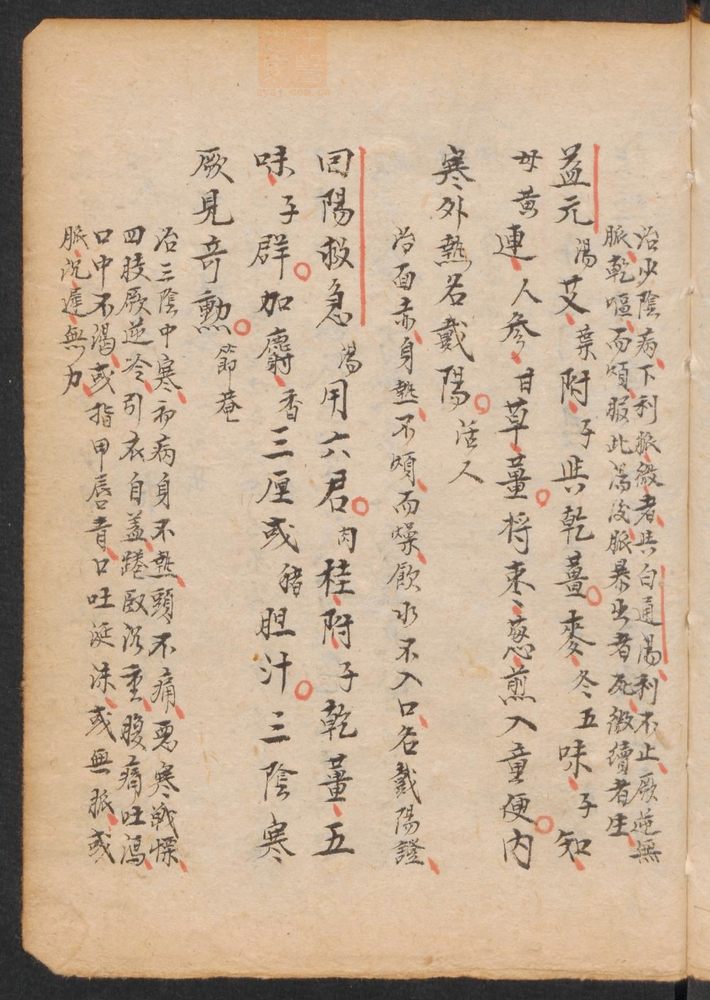 治少陰病下利脈微者與白通湯利不止厥逆無
脈乾嘔而煩服此湯後脈暴出者死微續者生
益元湯艾葉附子與乾薑麥冬五味子知
母黃連人參甘草薑將枣葱煎入童便内
寒外熱名戴陽活人
治面赤身熱不煩而燥飲水不入口名戴陽證
回陽救急湯用六君肉桂附子乾薑五
味子群加麝香三厘或猪胆汁三陰寒
厥見奇勲節菴
治三陰中寒初病身不熱頭不痛惡寒戰慄
四肢厥逆冷引衣自蓋踡卧沉重腹痛吐瀉
口中不渴或指甲唇青口吐涎沫或無脈或
脈沉遲無力